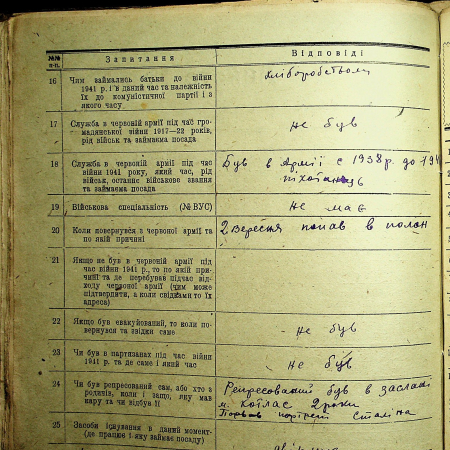 №№
п-п.
Запитання
Відповіді
16 Чим займались батьки до війни
1941 р. і в даний час та належність
їх до комуністичної партії і з
якого часу
хліборобством
17 Служба в червоній армії під час гро-
мадянської війни 1917—22 років,
рід військ та займаєма посада
не був
18 Служба в червоній армії під час
війни 1941 року, який час, рід
військ, останнє військове звання
та займаєма посада
Був в Армії с 1938 р. до 194
піхотинець
19 Військова спеціяльність (№ ВУС)
не має
20 Коли повернувся з червоної армії та
по якій причині
2 вересня попав в полон
21 Якщо не був в червоній армії під
час війни 1941 р., то по якій при-
чині та де перебував підчас від-
ходу червоної армії (чим може
підтвердити, а коли свідками то їх
адреса)
22 Якщо був евакуйований, то коли по-
вернувся та звідки саме
- не був
23 Чи був в партизанах під час війни
1941 р. та де саме і який час
не був
24 Чи був репресований сам, або хто з
родичів, коли і защо, яку мав
кару та чи відбув її
Репресований був в заслані
м. котлас 2 роки
Порвав портрет Сталіна
25 Засоби існування в даний момент
(де працює і яку займає посаду)